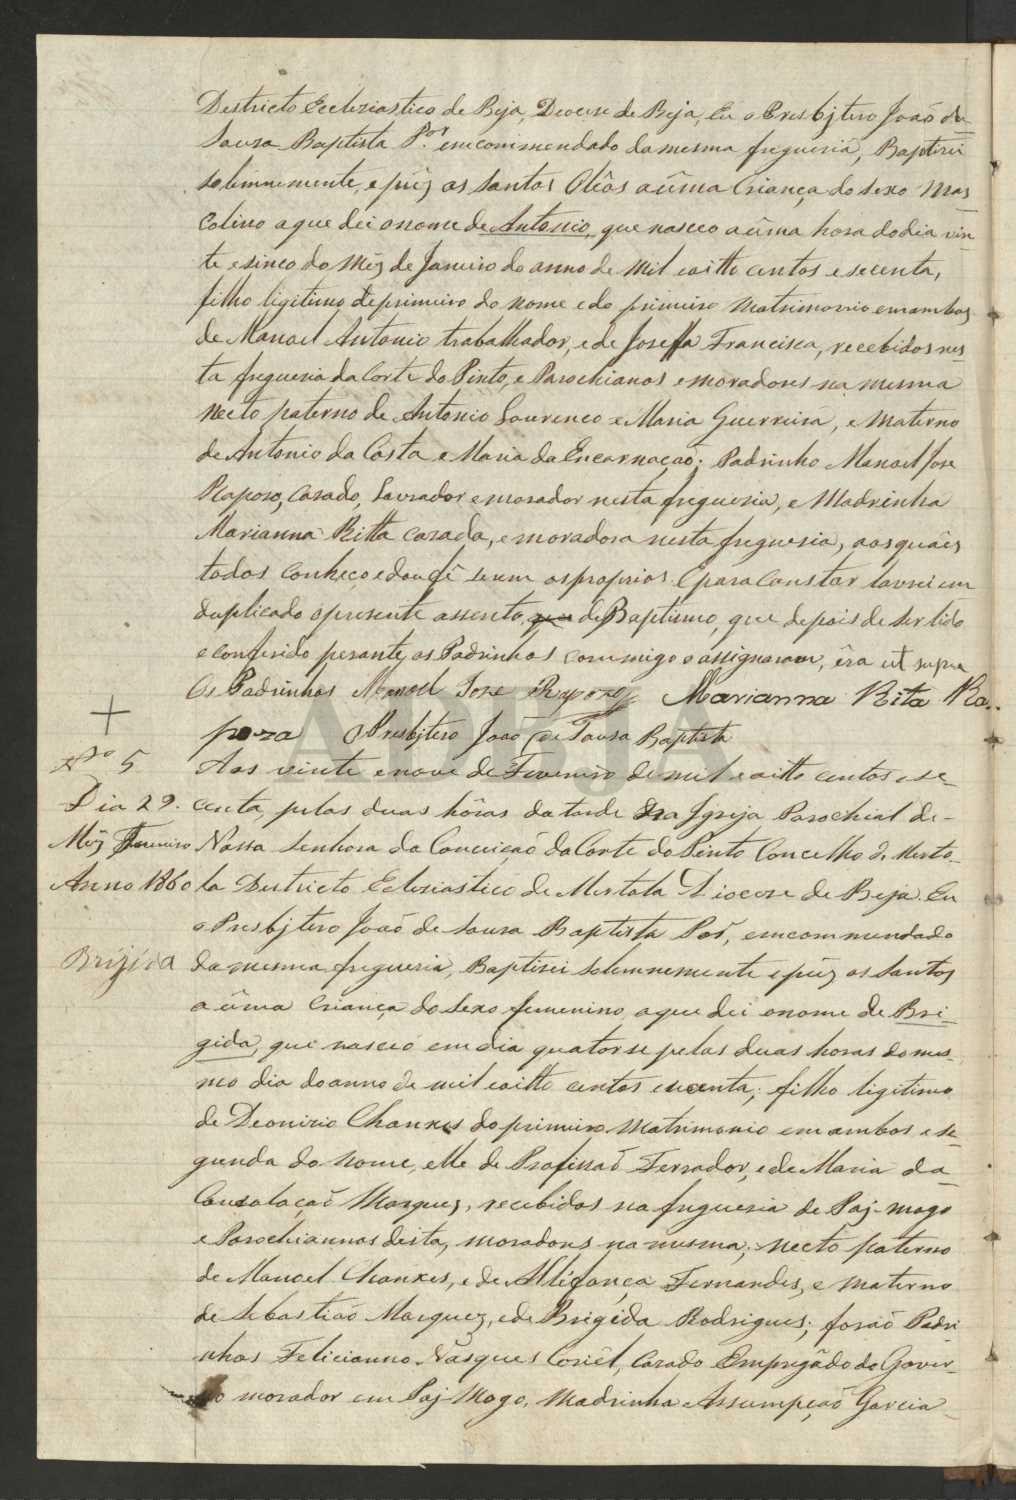 Destricto Ecclesiastico de Beja, Deocese de Beja, Eu o Presbjtero Joaõ de
Sousa Baptista P.or emcommendado da mesma freguesia, Baptisei
solemnemente, e púz os Santos Oleôs a ûma Criança do sexo Mas
colino a que dei o nome de Antonio, que nasceo a ûma hora do dia vin
te e sinco do Mêz de Janeiro do anno de mil e oitto centos e secenta,
filho ligitimo de primeiro do nome e do primeiro Matrimonio em ambos
de Manoel Antonio trabalhador, e de Joseffa Francisca, recebidos nes_
ta freguesia da Corte do Pinto, e Parochianos e moradores na mesma
Necto paterno de Antonio Lourenco e Maria Guerreira, e Materno
de Antonio da Costa e Maria da Encarnaçaõ; Padrinho Manoel Jose
Raposo, Casado, Lavrador e morador nesta freguesia, e Madrinha
Marianna Ritta Casada, e moradora nesta freguesia, aos quaês
todos conheco e dou fê serem os proprios. E para Constar lavrei em
duplicado o presente assento, que de Baptismo, que depois de ser lido
e conferido perante, os Padrinhos commigo o assignaram, êra ut supra
Os Padrinhos Manoel Jose Raposo Marianna Rita Ra..
poza O Presbjtero Joaõ de Sousa Baptista
Nº 5 Aos vinte e nove de Fevereiro de mil e oitto centos e se_
Dia 29. centa, pelas duas hôras da tarde na Igrija Parochial de -
Mêz Fevereiro Nossa Senhora da Conceiçaõ da Corte do Pinto Concelho de Merto_
Anno 1860 la Destricto Eclesiastico de Mertola Diocese de Beja. Eu
o Presbjtero Joaõ de Sousa Baptista Por, emcommendado
Brijida da mesma freguesia, Baptisei solemnemente e púz os Santos
a ûma Criança do sexo femenino, a que dei o nome de Bri_
gida, que nasceo em dia quatorse pelas duas horas do mes_
mo dia do anno de mil e oitto centos e secenta; filho ligitimo
de Deonizio Chanxes do primeiro Matrimonio em ambos e se_
gunda do nome, elle de Profissaõ Ferrador, e de Maria da_
Consolaçaõ Marques, recebidos na freguesia de Paj-mogo
e Parochiannos desta, moradores na mesma; Necto paterno
de Manoel Chanxes, e de Fernandes, e Materno
de Sebastiaõ Marques, e de Brigida Rodrigues; foraõ Padri
nhos Felicianno Vasques Casado Empregâdo do Gover_
no morador em Paj-Mogo, Madrinha Assumpçaõ Garcia